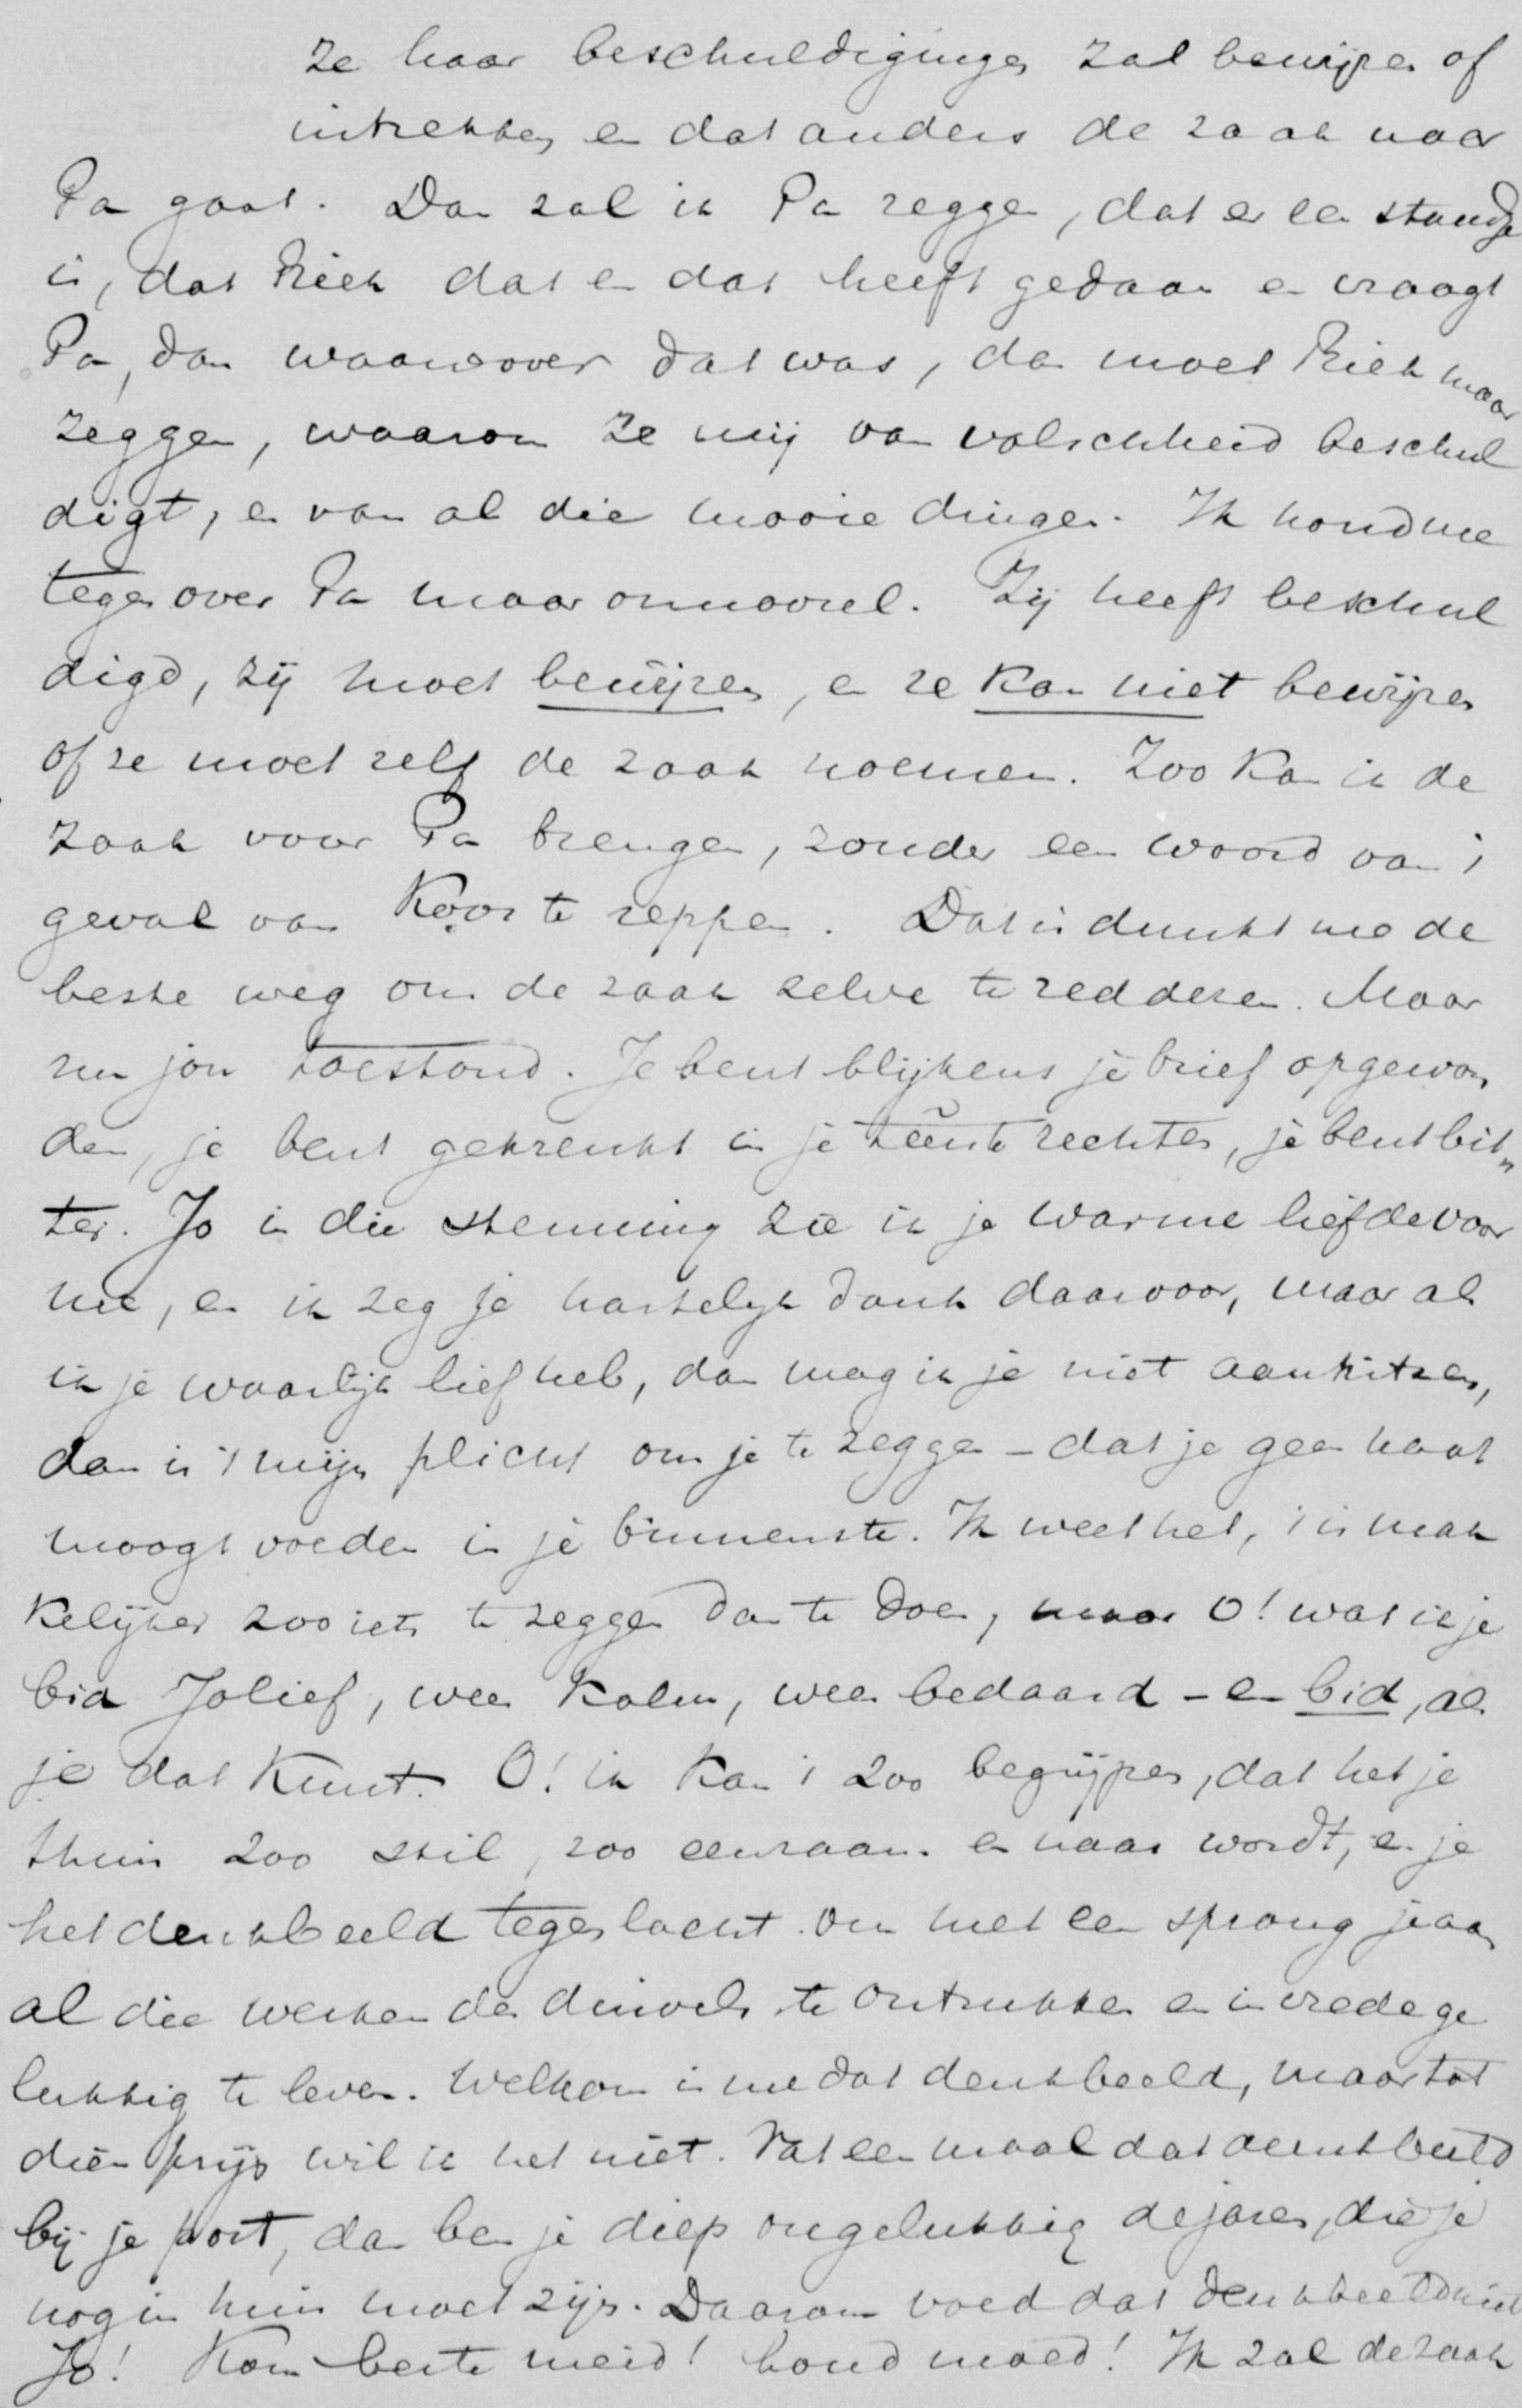 ze haar beschuldigingen zal bewijzen of
intrekken en dat anders de zaak naar
Pa gaat. Dan zal ik Pa zeggen, dat er een standje
is, dat Riek dat en dat heeft gedaan en vraagt
Pa, dan waarover dat was, dan moet Riek maar
zeggen, waarom ze mij van valschheid beschul
digt, en van al die mooie dingen. Ik houd me
tegenover Pa maar onnoozel. Zij heeft beschul
digd, zij moet bewijzen, en ze kan niet bewijzen
of ze moet zelf de zaak noemen. Zoo kan ik de
zaak voor Pa brengen, zonder een woord van 't
geval van Koos te reppen. Dat is dunkt me de
beste weg om de zaak zelve te redderen. Maar
nu jou toestand. Je bent blijkens je brief opgewon
den, je bent gekrenkt in je rechten, je bent bit„
ter. Jo in die stemming zie ik je warme liefde voor
me, en ik zeg je hartelijk dank daarvoor, maar als
ik je waarlijk lief heb, dan mag ik je niet aanhitzen,
dan is 't mijn plicht om je te zeggen – dat je geen haat
moogt voeden in je binnenste. Ik weet het, 't is mak
kelijker zoo iets te zeggen dan te doen, maar O! wat ik je
bid Jolief, wees kalm, wees bedaard – en bid, als
je dat kunt. O! ik kan 't zoo begrijpen, dat het je
thuis zoo stil, zoo eenzaam en naar wordt, en je
het denkbeeld tegenlacht om met een sprong je aan
al die werken des duivels te ontrukken en in vrede ge
lukkig te leven. Welkom is me dat denkbeeld, maar tot
dien prijs wil ik het niet. Vat eenmaal dat denkbeeld
bij je post, dan ben je diep ongelukkig de jaren, die je
nog in huis moet zijn. Daarom voed dat denkbeeld niet
Jo! Kom beste meid! houd moed! Ik zal de zaak